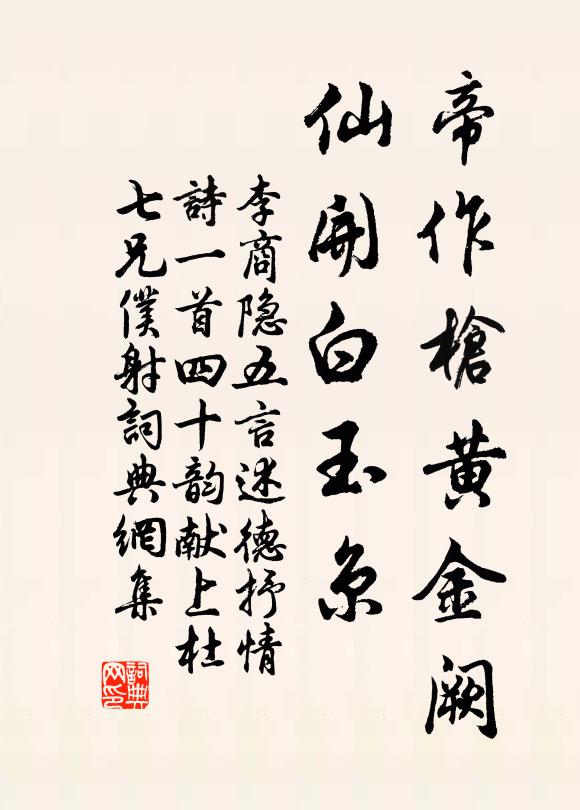 帝作槍黄金阙
仙開白玉京
李商隐五言述德抒情
詩一首四十韵献上杜
七兄僕射詞典網集
詞典网印